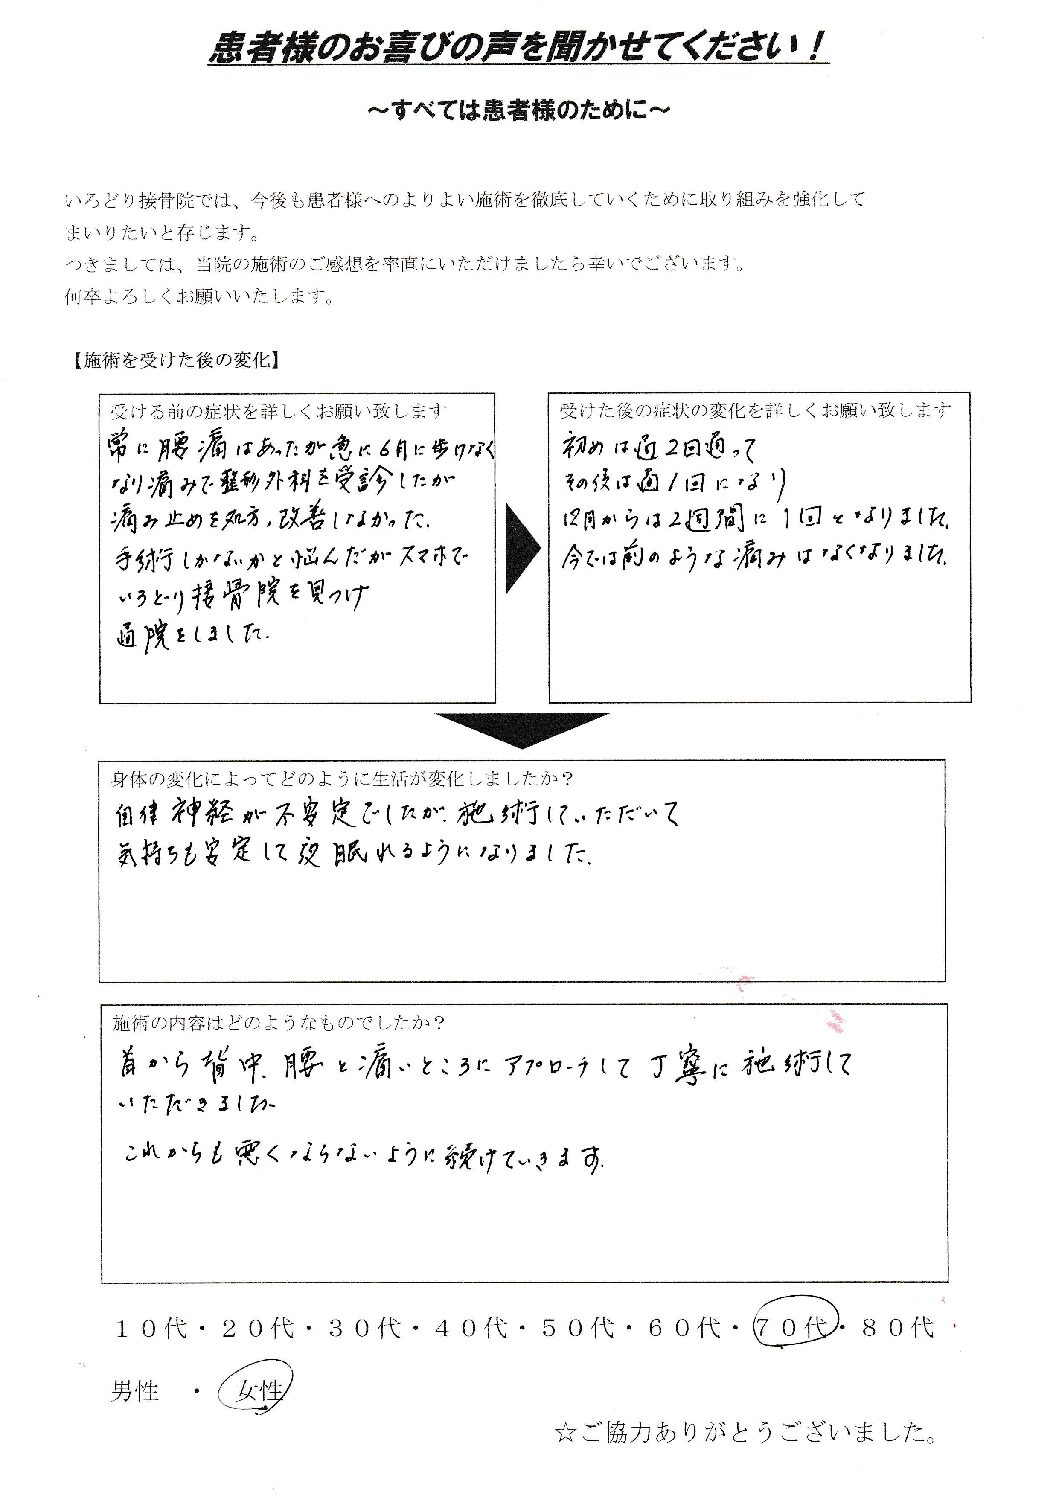 患者様のお喜びの声を聞かせてください！
～すべては患者様のために～
いろどり接骨院では、今後も患者様へのよりよい施術を徹底していくために取り組みを強化して
まいりたいと存じます。
つきましては、当院の施術のご感想を率直にいただけましたら幸いでございます。
何卒よろしくお願いいたします。
【施術を受けた後の変化】
受ける前の症状を詳しくお願い致します
常に腰痛はあったが急に6月に歩けなく
なり痛みで整形外科を受診したが
痛み止めを処方、改善しなかった。
手術行しかないかと悩んだがスマホで
いろどり接骨院を見つけ
通院をしました。
受けた後の症状の変化を詳しくお願い致します
初めは週2回通って
その後は週1回になり
12月からは2週間に1回となりました。
今では前のような痛みはなくなりました。
身体の変化によってどのように生活が変化しましたか？
自律神経が不安定でしたが、施術行していただいて
気持ちも安定して夜眠れるようになりました。
施術の内容はどのようなものでしたか？
首から背中、腰と痛いところにアプローチして丁寧に施術行して
いただきました
これからも悪くならないように続けていきます。
１０代・２０代・３０代・４０代・５０代・６０代・７０代・８０代
男性　・　女性
☆ご協力ありがとうございました。